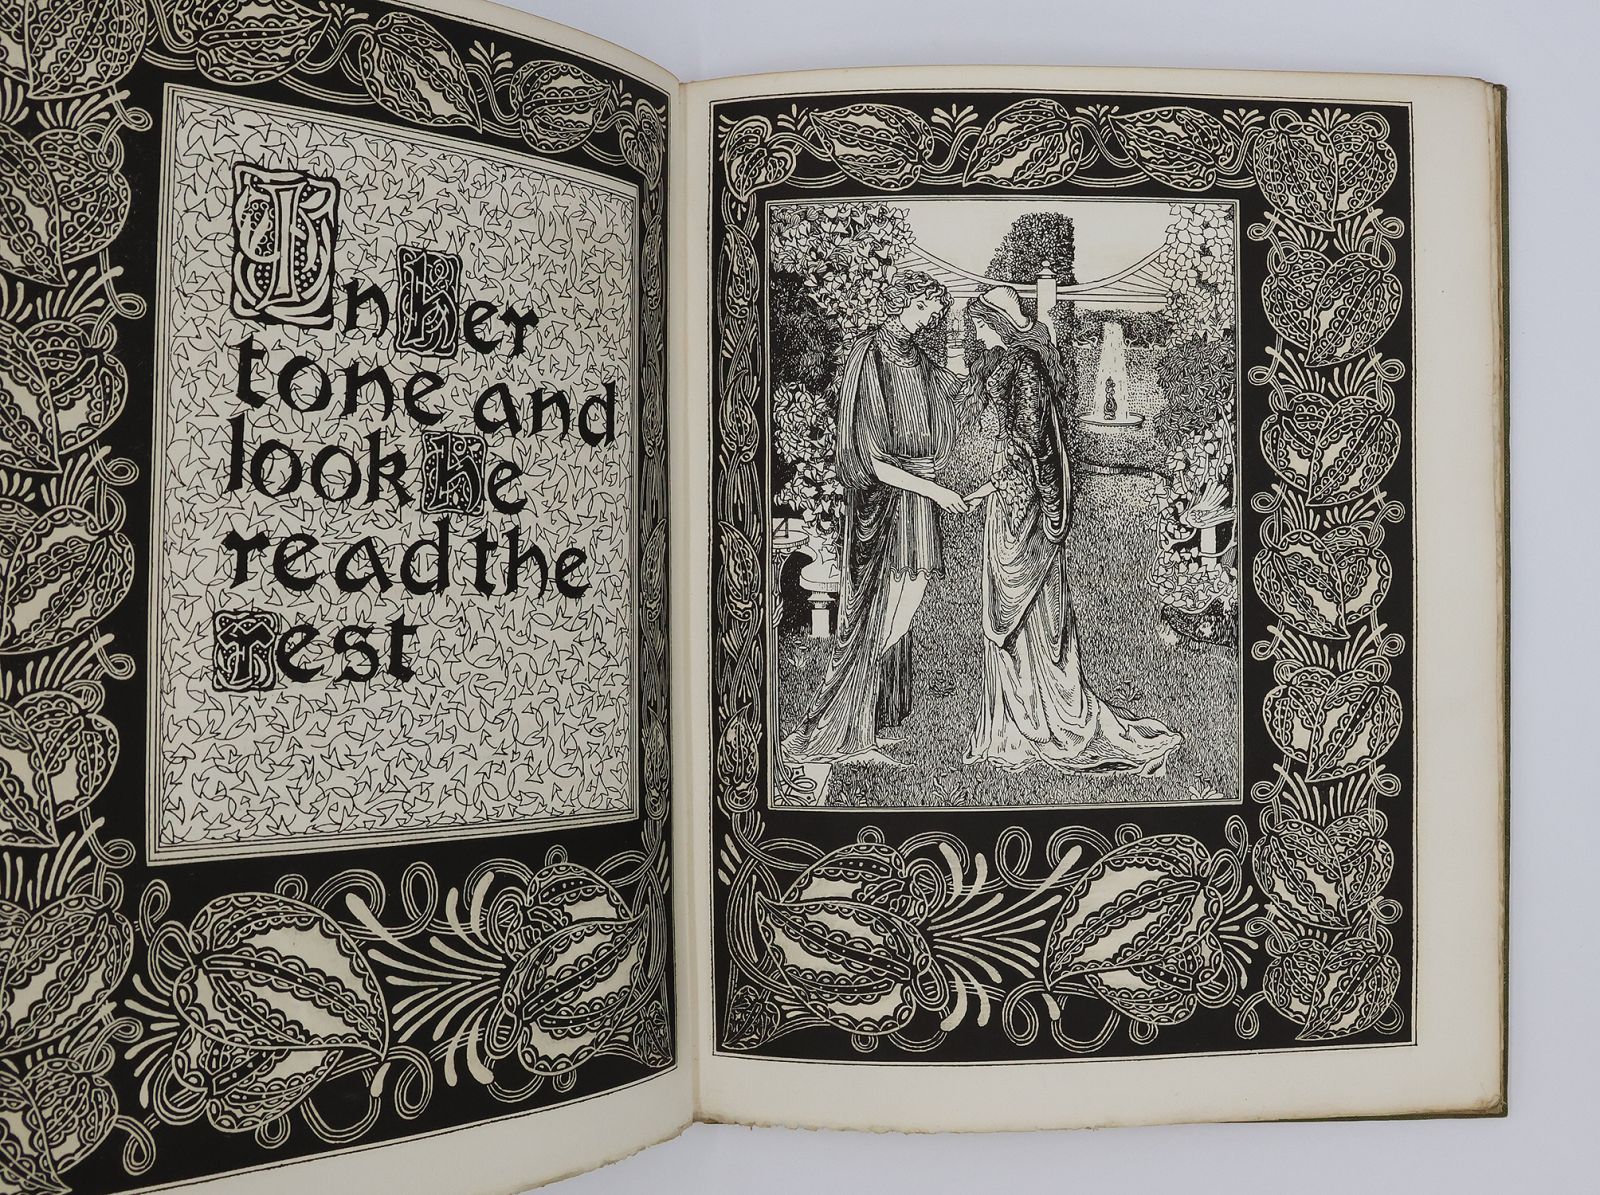 In her
tone and
look he
read the
rest